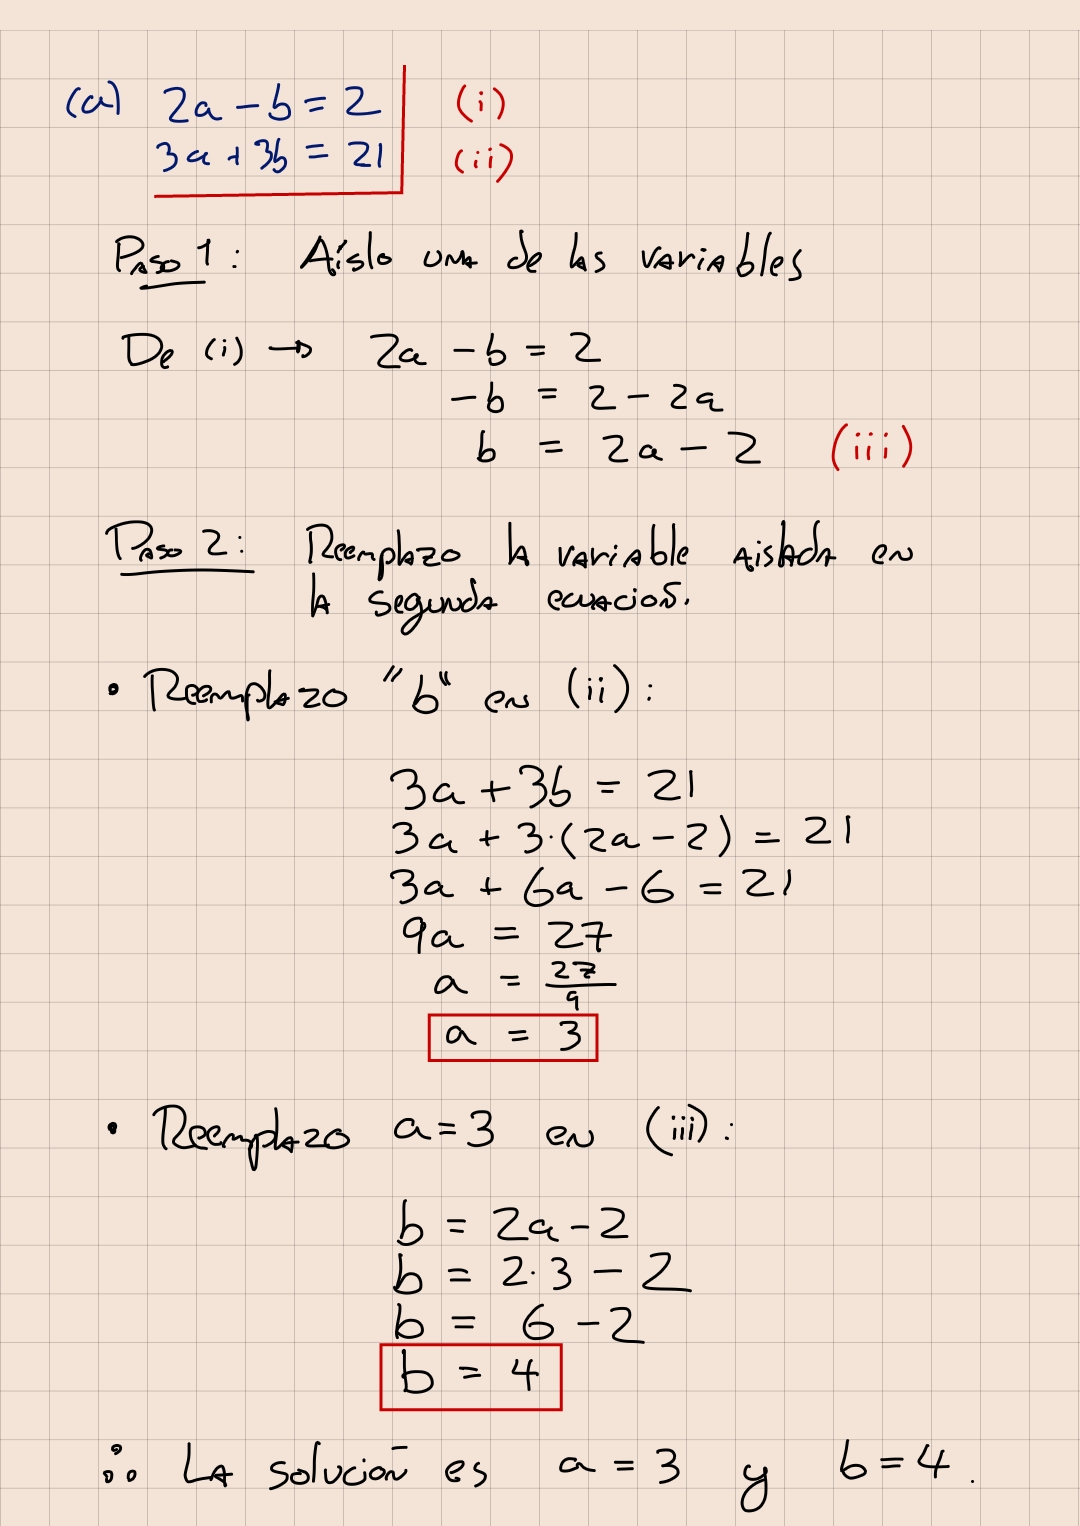 (a) 2a - b = 2 (i)
3a + 3b = 21 (ii)
Paso 1: Aíslo una de las variables
De (i) → 2a - b = 2
-b = 2 - 2a
b = 2a - 2 (iii)
Paso 2: Reemplazo la variable aislada en
la segunda ecuación.
• Reemplazo "b" en (ii):
3a + 3b = 21
3a + 3·(2a - 2) = 21
3a + 6a - 6 = 21
9a = 27
a = 27/9
a = 3
• Reemplazo a = 3 en (iii):
b = 2a - 2
b = 2·3 - 2
b = 6 - 2
b = 4
∴ La solución es a = 3 y b = 4.